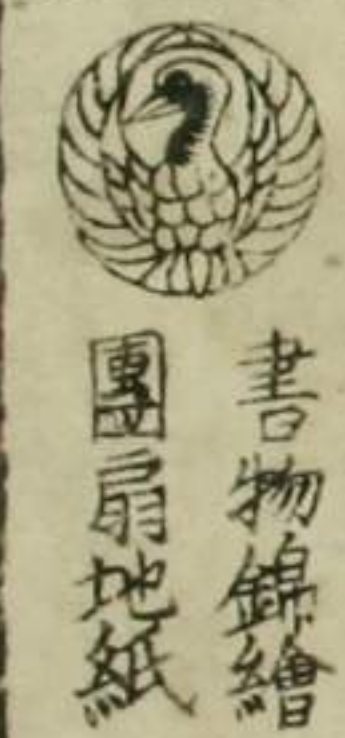 書物錦繪
團扇地紙